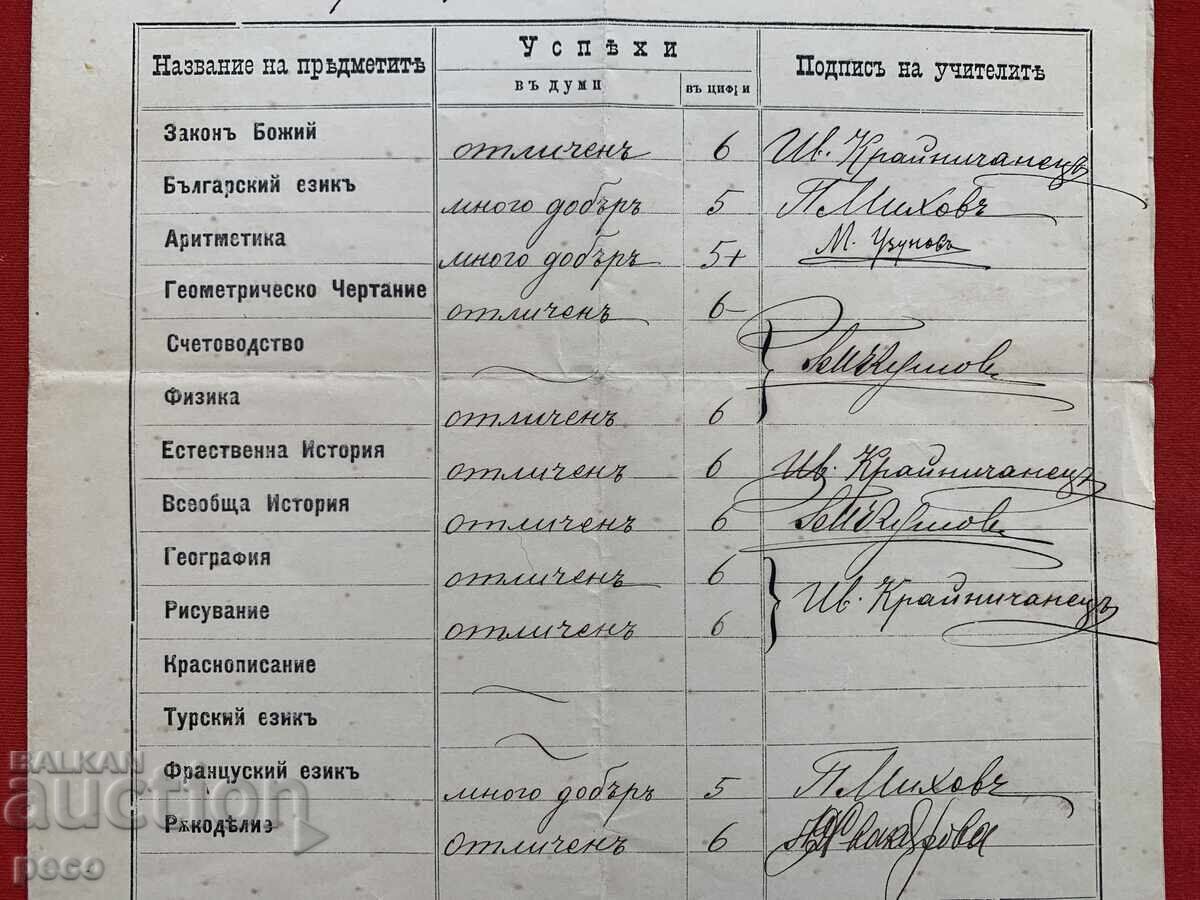 Название на прѣдметитѣ Успѣхи Подписъ на учителитѣ
въ думи въ цифри
Законъ Божий отличенъ 6 Ив. Крайничанецъ
Българский езикъ много добъръ 5 П. Миховъ
Аритметика много добъръ 5+ М. Узуновъ
Геометрическо Чертание отличенъ 6-
Счетоводство
Физика отличенъ 6
Естественна История отличенъ 6 Ив. Крайничанецъ
Всеобща История отличенъ 6
География отличенъ 6 Ив. Крайничанецъ
Рисувание отличенъ 6
Краснописание
Турский езикъ
Француский езикъ много добъръ 5 П. Миховъ
Рѫкодѣлие отличенъ 6
BALKAN
auction
peco